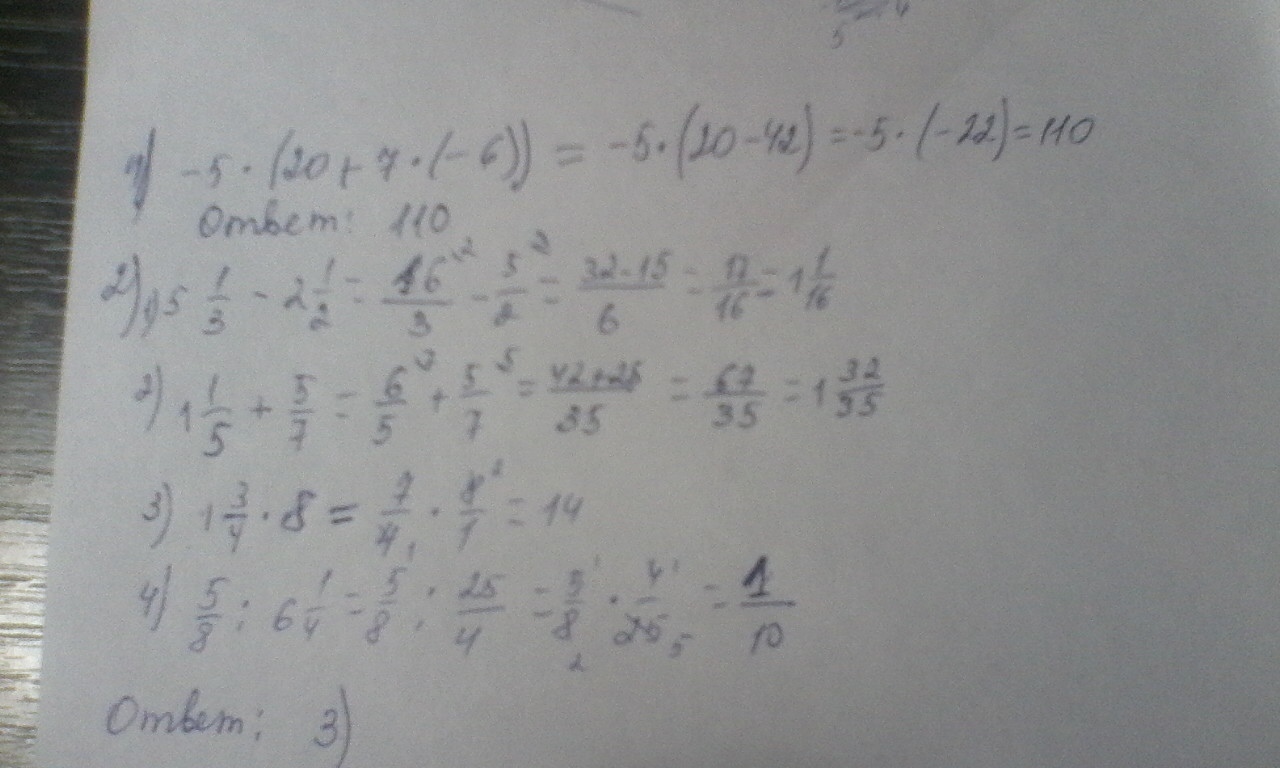 1) -5 · (20 + 7 · (-6)) = -5 · (20 - 42) = -5 · (-22) = 110
Ответ: 110
2) 1) 5 1/3 - 2 1/2 = 16/3 ² - 5/2 ³ = 32-15/6 = 17/16 = 1 1/16
2) 1 1/5 + 5/7 = 6/5 ⁷ + 5/7 ⁵ = 42+25/35 = 67/35 = 1 32/35
3) 1 3/4 · 8 = 7/4 ₁ · 8/1 ² = 14
4) 5/8 : 6 1/4 = 5/8 : 25/4 = 5/8 ¹ ₂ · 4/25 ¹ ₅ = 1/10
Ответ: 3)